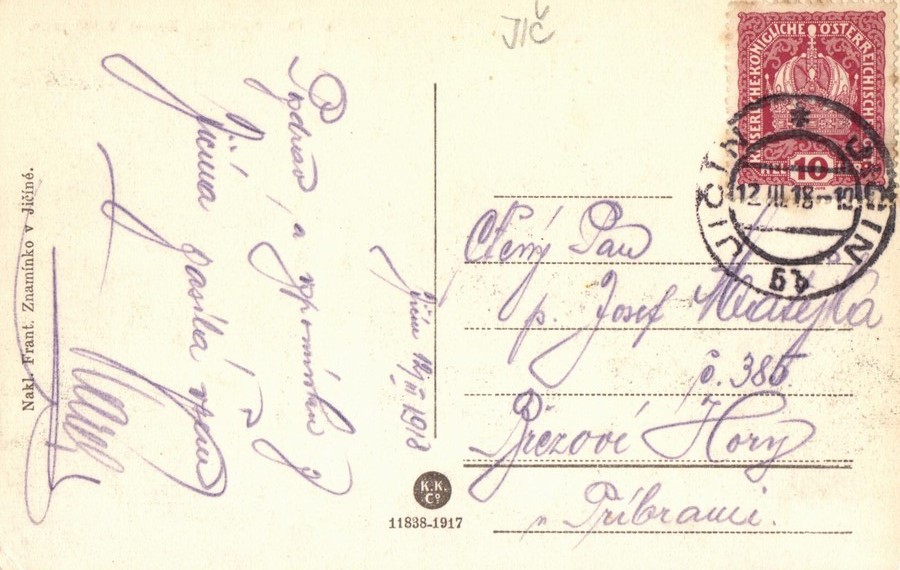 JIČ
KAISERLICHE KÖNIGLICHE ÖSTERREICHISCHE
10
JIČÍN
12.III.18-10
JIČIN
Jičín 12/III 1918
Pozdrav a vzpomínku z
Jičína zasílá Vám
Karel
Ctěný Pan
p. Josef
č. 385.
Březové Hory
Příbrami.
Nakl. Frant. Znamínko v Jičíně.
K.K.
Co
11838-1917